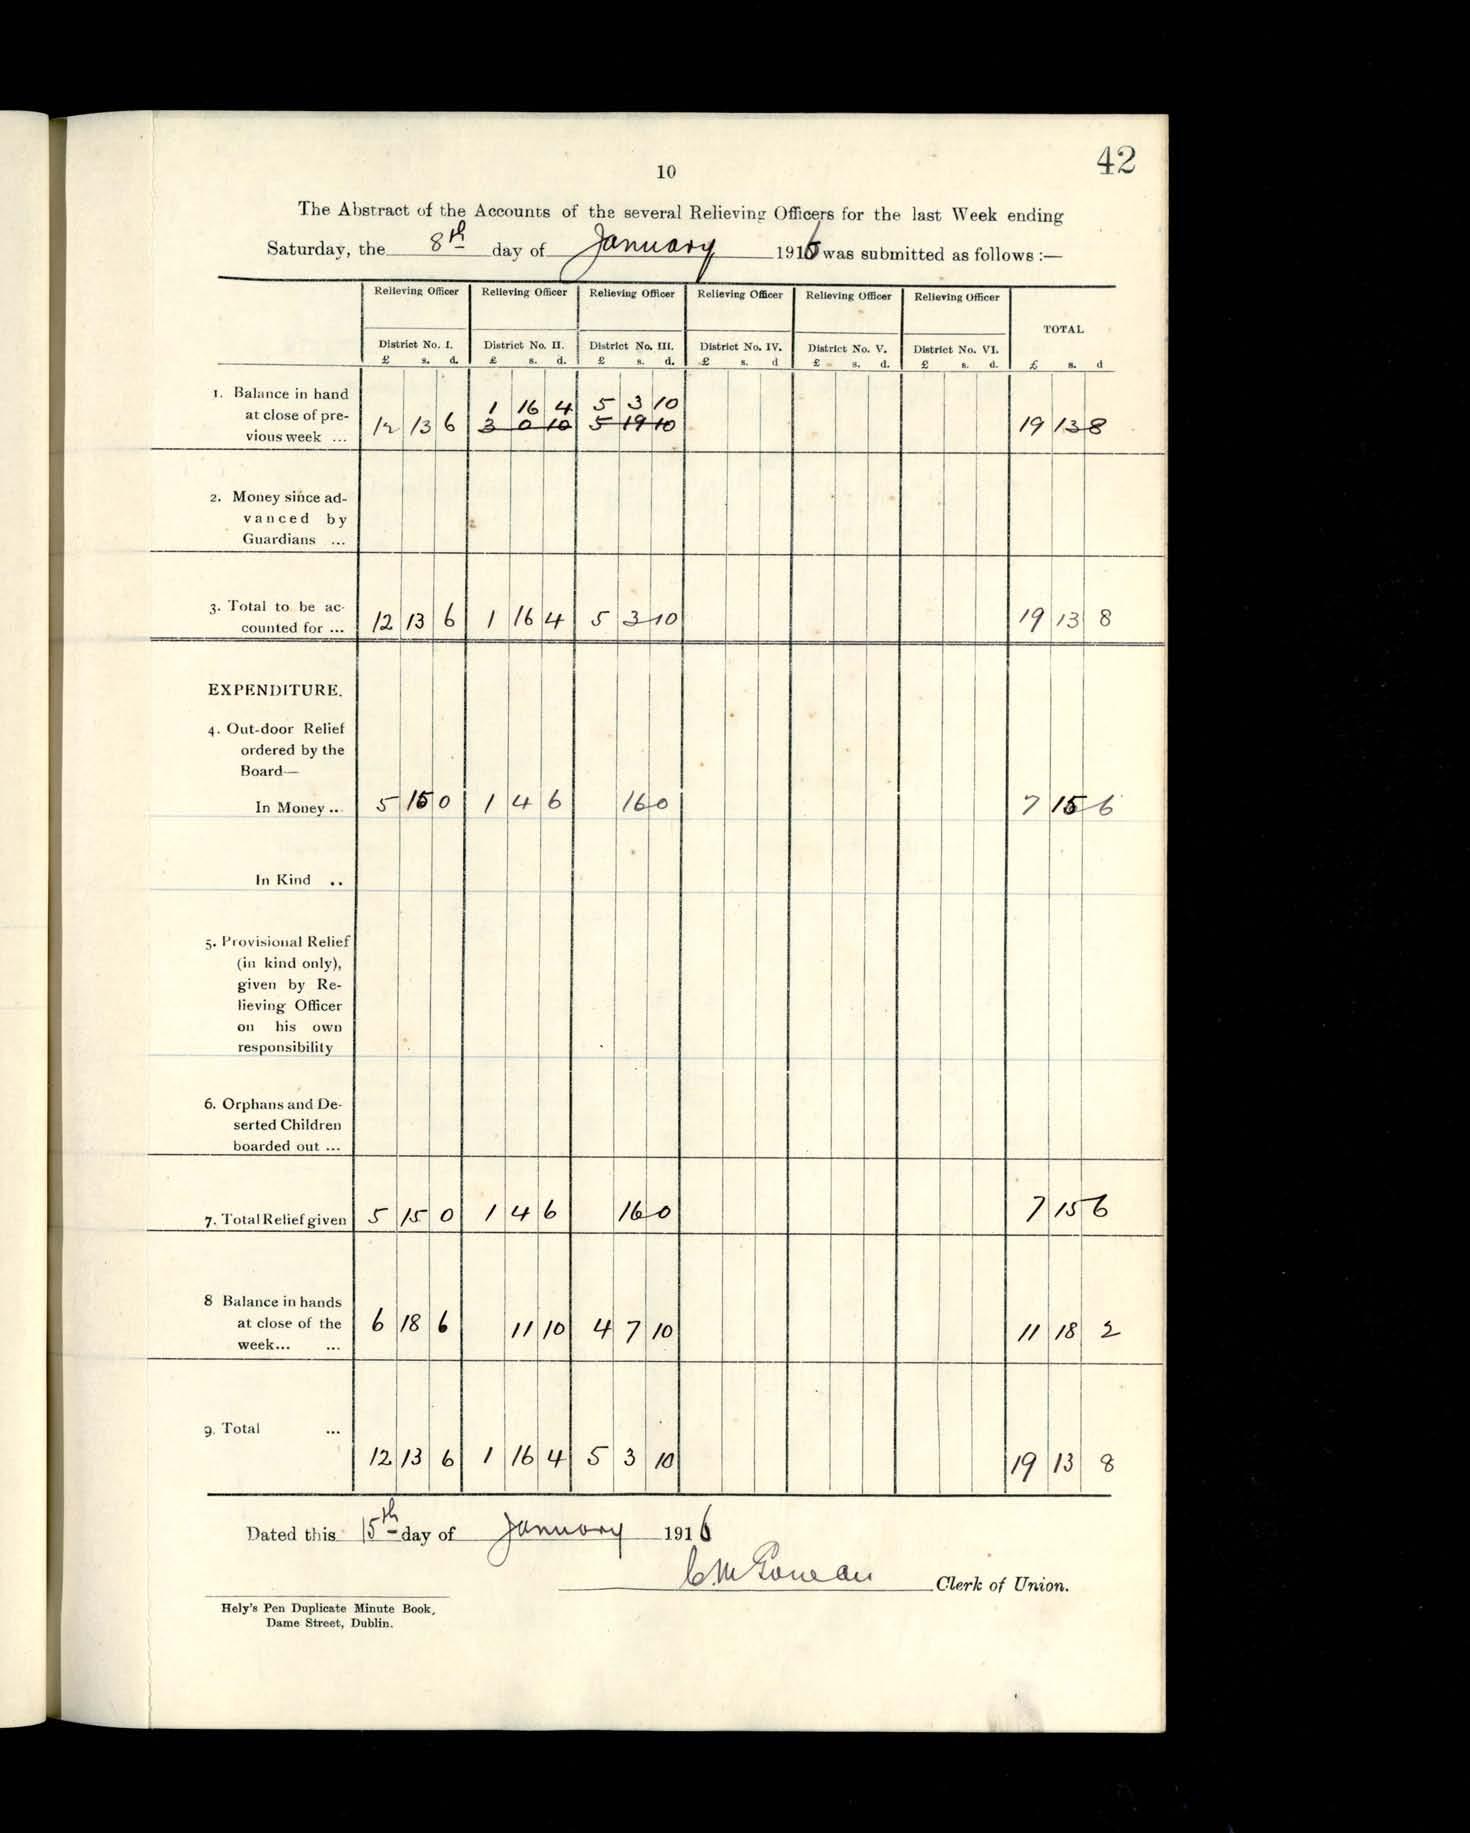 42
10
The Abstract of the Accounts of the several Relieving Officers for the last Week ending
Saturday, the 8th day of January 1916 was submitted as follows :—
Relieving Officer Relieving Officer Relieving Officer Relieving Officer Relieving Officer Relieving Officer
TOTAL
District No. I. District No. II. District No. III. District No. IV. District No. V. District No. VI.
£ s. d. £ s. d. £ s. d. £ s. d £ s. d. £ s. d. £ s. d
1. Balance in hand
1 16 4 5 3 10
at close of pre-
12 13 6 3 0 10 5 19 10 19 13 8
vious week ...
2. Money since ad-
vanced by
Guardians ...
3. Total to be ac-
counted for ... 12 13 6 1 16 4 5 3 10 19 13 8
EXPENDITURE.
4. Out-door Relief
ordered by the
Board—
In Money .. 5 15 0 1 4 6 16 0 7 15 6
In Kind ..
5. Provisional Relief
(in kind only),
given by Re-
lieving Officer
on his own
responsibility
6. Orphans and De-
serted Children
boarded out ...
7. Total Relief given 5 15 0 1 4 6 16 0 7 15 6
8 Balance in hands
at close of the 6 18 6 11 10 4 7 10 11 18 2
week... ...
9. Total ...
12 13 6 1 16 4 5 3 10 19 13 8
Dated this 15th day of January 1916
Clerk of Union.
Hely's Pen Duplicate Minute Book,
Dame Street, Dublin.